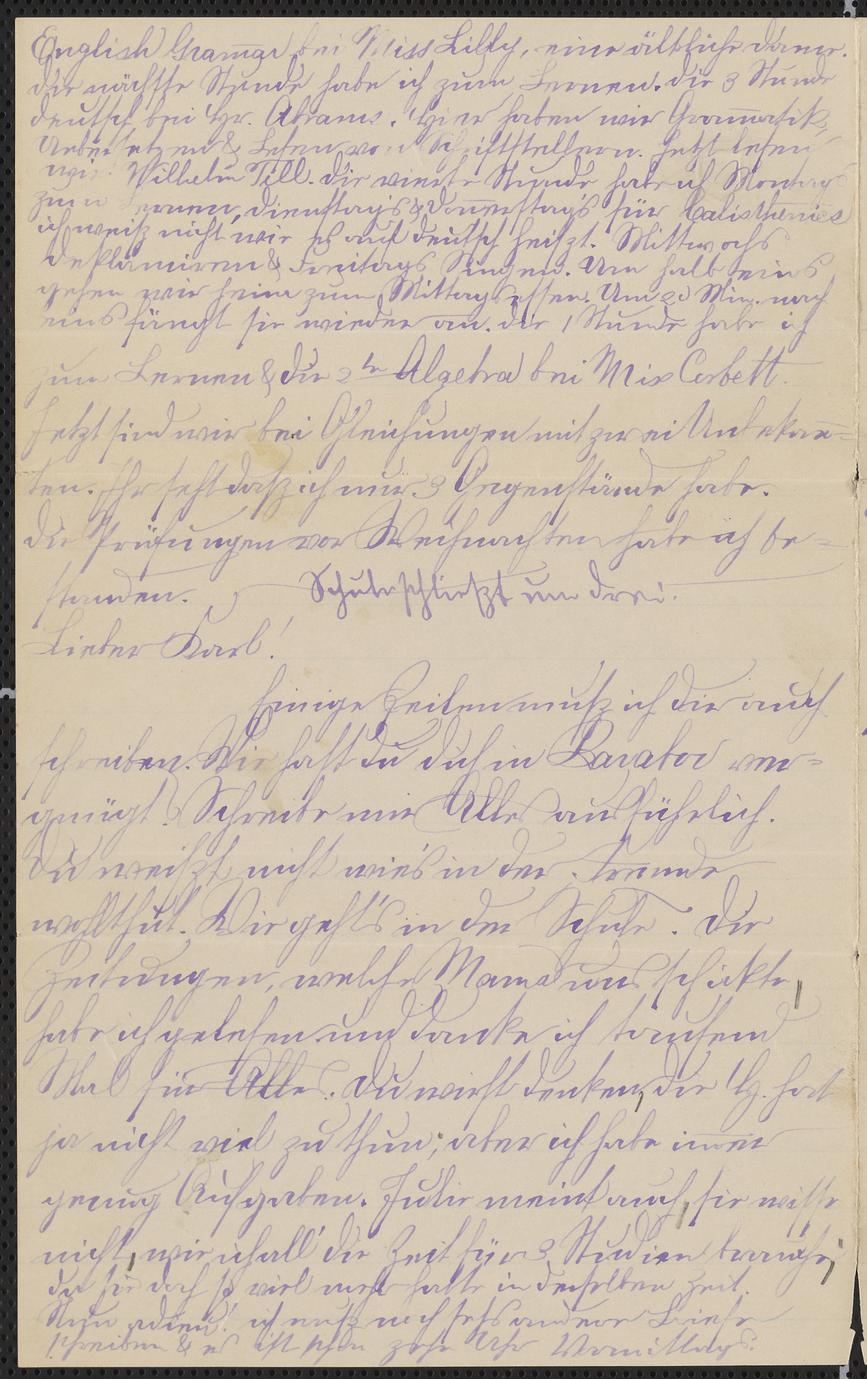 English Gramar bei Miss Lilly, eine ältliche Dame.
Die nächste Stunde habe ich zum Lernen. Die 3 Stunde
deutsch bei Hr. Abrams. Hier haben wir Grammatik,
Uebersetzen & Lesen von Schriftstellern. Jetzt lesen
wir Wilhelm Tell. Die vierte Stunde habe ich Montags
zum Lernen, Dienstags & Donnerstags für Calisthenics
ich weiß nicht wie es auf deutsch heißt. Mittwochs
Deklamiren & Freitags Singen. Um halb eins
gehen wir heim zum Mittagsessen. Um 20 Min. nach
eins fängt sie wieder an. Die 1 Stunde habe ich
zum Lernen & die 2te Algebra bei Miss Corbett.
Jetzt sind wir bei Gleichungen mit zwei Unbekan=
ten. Ihr seht daß ich nur 3 Gegenstände habe.
Die Prüfungen vor Weihnachten habe ich be=
standen. Schule schließt um drei.
Lieber Karl!
Einige Zeilen muß ich dir auch
schreiben. Wie hast du dich in Baraboo ver=
gnügt? Schreibe mir Alles ausführlich.
Du weißt nicht wie's in der Fremde
wohlthut. Wie geht's in der Schule. Die
Zeitungen, welche Mama uns schickte,
habe ich gelesen und danke ich tausend
Mal für Alles. Du wirst denken, die H. hat
ja nicht viel zu thun; aber ich habe immer
genug Aufgaben. Julie meint auch, sie wisse
nicht, wie ich all' die Zeit für 3 Studien brauche,
da sie doch so viel mehr hatte in derselben Zeit.
Nun adieu! ich muß noch sechs andere Briefe
schreiben & es ist schon zehn Uhr Vormittags.